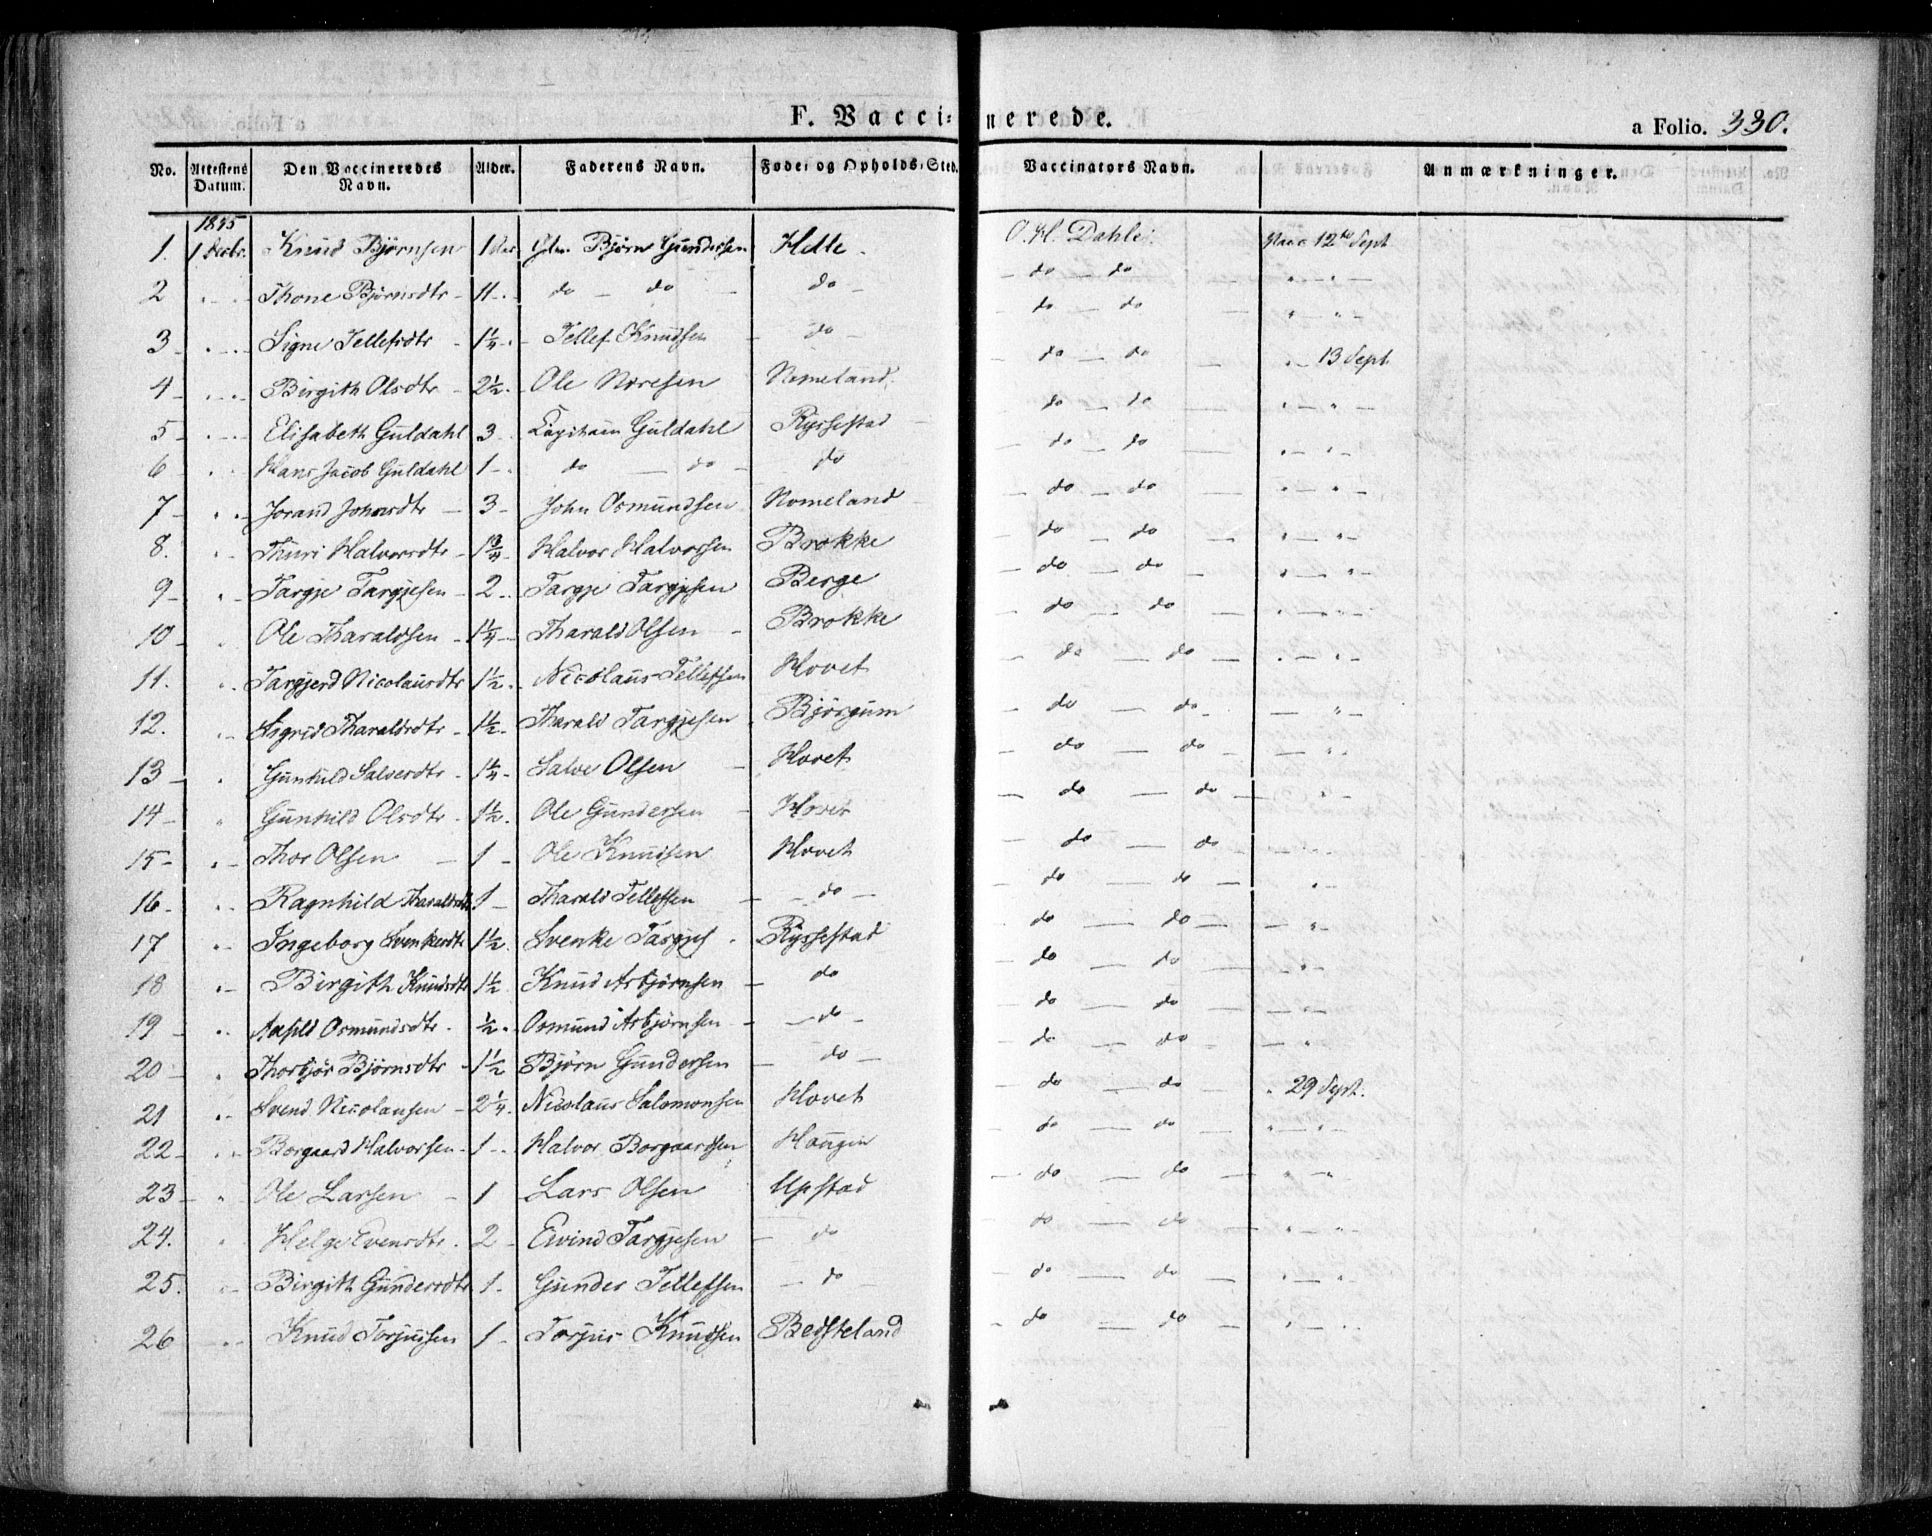 F. Vaccinerede.
a Folio. 330.
No. | Attestens Datum. | Den Vaccineredes Navn. | Alder. | Faderens Navn. | Føde- og Opholds-Sted. | Vaccinators Navn. | Anmærkninger.
1845
1. | 1 | Knud Bjørnsen | 1 | Bjørn Gundersen | Helle | O. H. Dahle | Vacc 12te Sept
2 | " | Thone Bjørnsdtr | 11 | do do | do | do do | " "
3 | " | Signe Tellefsdtr | 1 1/4 | Tellef Knudsen | do | do do | " "
4 | " | Birgith Olsdtr | 2 1/2 | Ole | Nomeland | do do | " 13 Sept
5 | " | Elisabeth Guldahl | 3 | Capitain Guldahl | Rysstad | do do | " "
6 | " | Hans Jacob Guldahl | 1 | do do | do | do do | " "
7 | " | Jorand Johnsdtr | 3 | John Osmundsen | Nomeland | do do | " "
8. | " | Thuri Halvorsdtr | 1 3/4 | Halvor Halvorsen | Brokke | do do | " "
9 | " | Targje Targjesen | 2 | Targje Targjesen | Berge | do do | " "
10 | " | Ole Tharaldsen | 1 1/4 | Tharald Olsen | Brokke | do do | " "
11. | " | Targjerd Nicolausdtr | 1 1/2 | Nicolaus Tellefsen | Hovet | do do | " "
12. | " | Sigrid Tharaldsdtr | 1 1/2 | Tharald Targjesen | Bjørgum | do do | "
13 | " | Gunhild Salvesdtr | 1 1/4 | Salve Olsen | Hovet | do do | "
14 | " | Gunhild Olsdtr | 1 1/2 | Ole Gundersen | Hovet | do do | "
15 | " | Thor Olsen | 1 | Ole Knudsen | Hovet | do do | "
16 | " | Ragnhild Tharaldsdtr | 1 | Tharald Tellefsen | do | do do | "
17 | " | Ingeborg Svenkesdtr | 1 1/2 | Svenke Targjes | Ryssestad | do do | "
18 | " | Birgith Knudsdtr | 1 1/2 | Knud Asbjørnsen | do | do do | "
19 | " | Osmundsdtr | 1/2 | Osmund Asbjørnsen | do | do do | "
20 | " | Thorbjør Bjørnsdtr | 1 1/2 | Bjørn Gundersen | do | do do | "
21 | " | Svend Nicolausen | 2 1/4 | Nicolaus Salomonsen | Hovet | do do | " 29 Sept.
22 | " | Borgaard Halvorsen | 1 | Halvor Borgaardsen | Haugen | do do | " "
23 | " | Ole Larsen | 1 | Lars Olsen | Upstad | do do | " "
24. | " | Helge Evensdtr | 2 | Eivind Targjesen | do | do do | " "
25. | " | Birgith Gundersdtr | 1 | Gunder Tellefsen | do | do do | " "
26 | " | Knud Torjussen | 1 | Torjus Knudsen | Bedsteland | do do | "